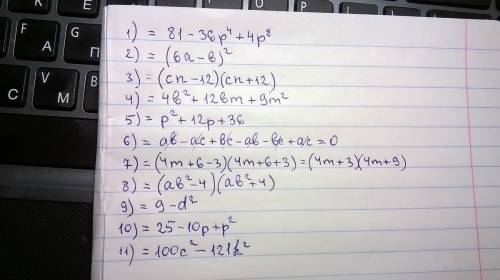 1) = 81 - 36p⁴ + 4p⁸
2) = (6a - b)²
3) = (cn - 12)(cn + 12)
4) = 4b² + 12bm + 9m²
5) = p² + 12p + 36
6) = ab - ac + bc - ab - bc + ac = 0
7) = (4m + 6 - 3)(4m + 6 + 3) = (4m + 3)(4m + 9)
8) = (ab² - 4)(ab² + 4)
9) = 9 - d²
10) = 25 - 10p + p²
11) = 100c² - 121k²